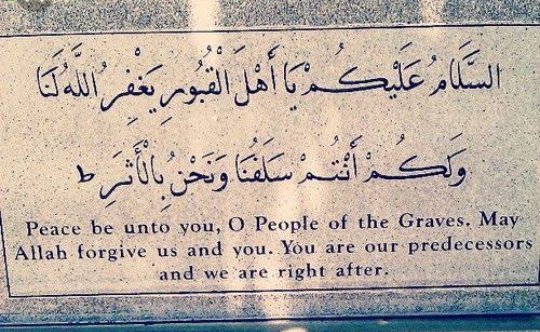 السَّلَامُ عَلَيْكُمْ يَا أَهْلَ الْقُبُورِ يَغْفِرُ اللَّهُ لَنَا
وَلَكُمْ أَنْتُمْ سَلَفُنَا وَنَحْنُ بِالْأَثَرَ ط
Peace be unto you, O People of the Graves. May
Allah forgive us and you. You are our predecessors
and we are right after.